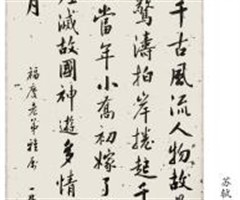 千古風流人物故
驚濤拍岸捲起千
當年小喬初嫁了
滅故國神遊多情
月
福慶老弟雅屬
苏轼